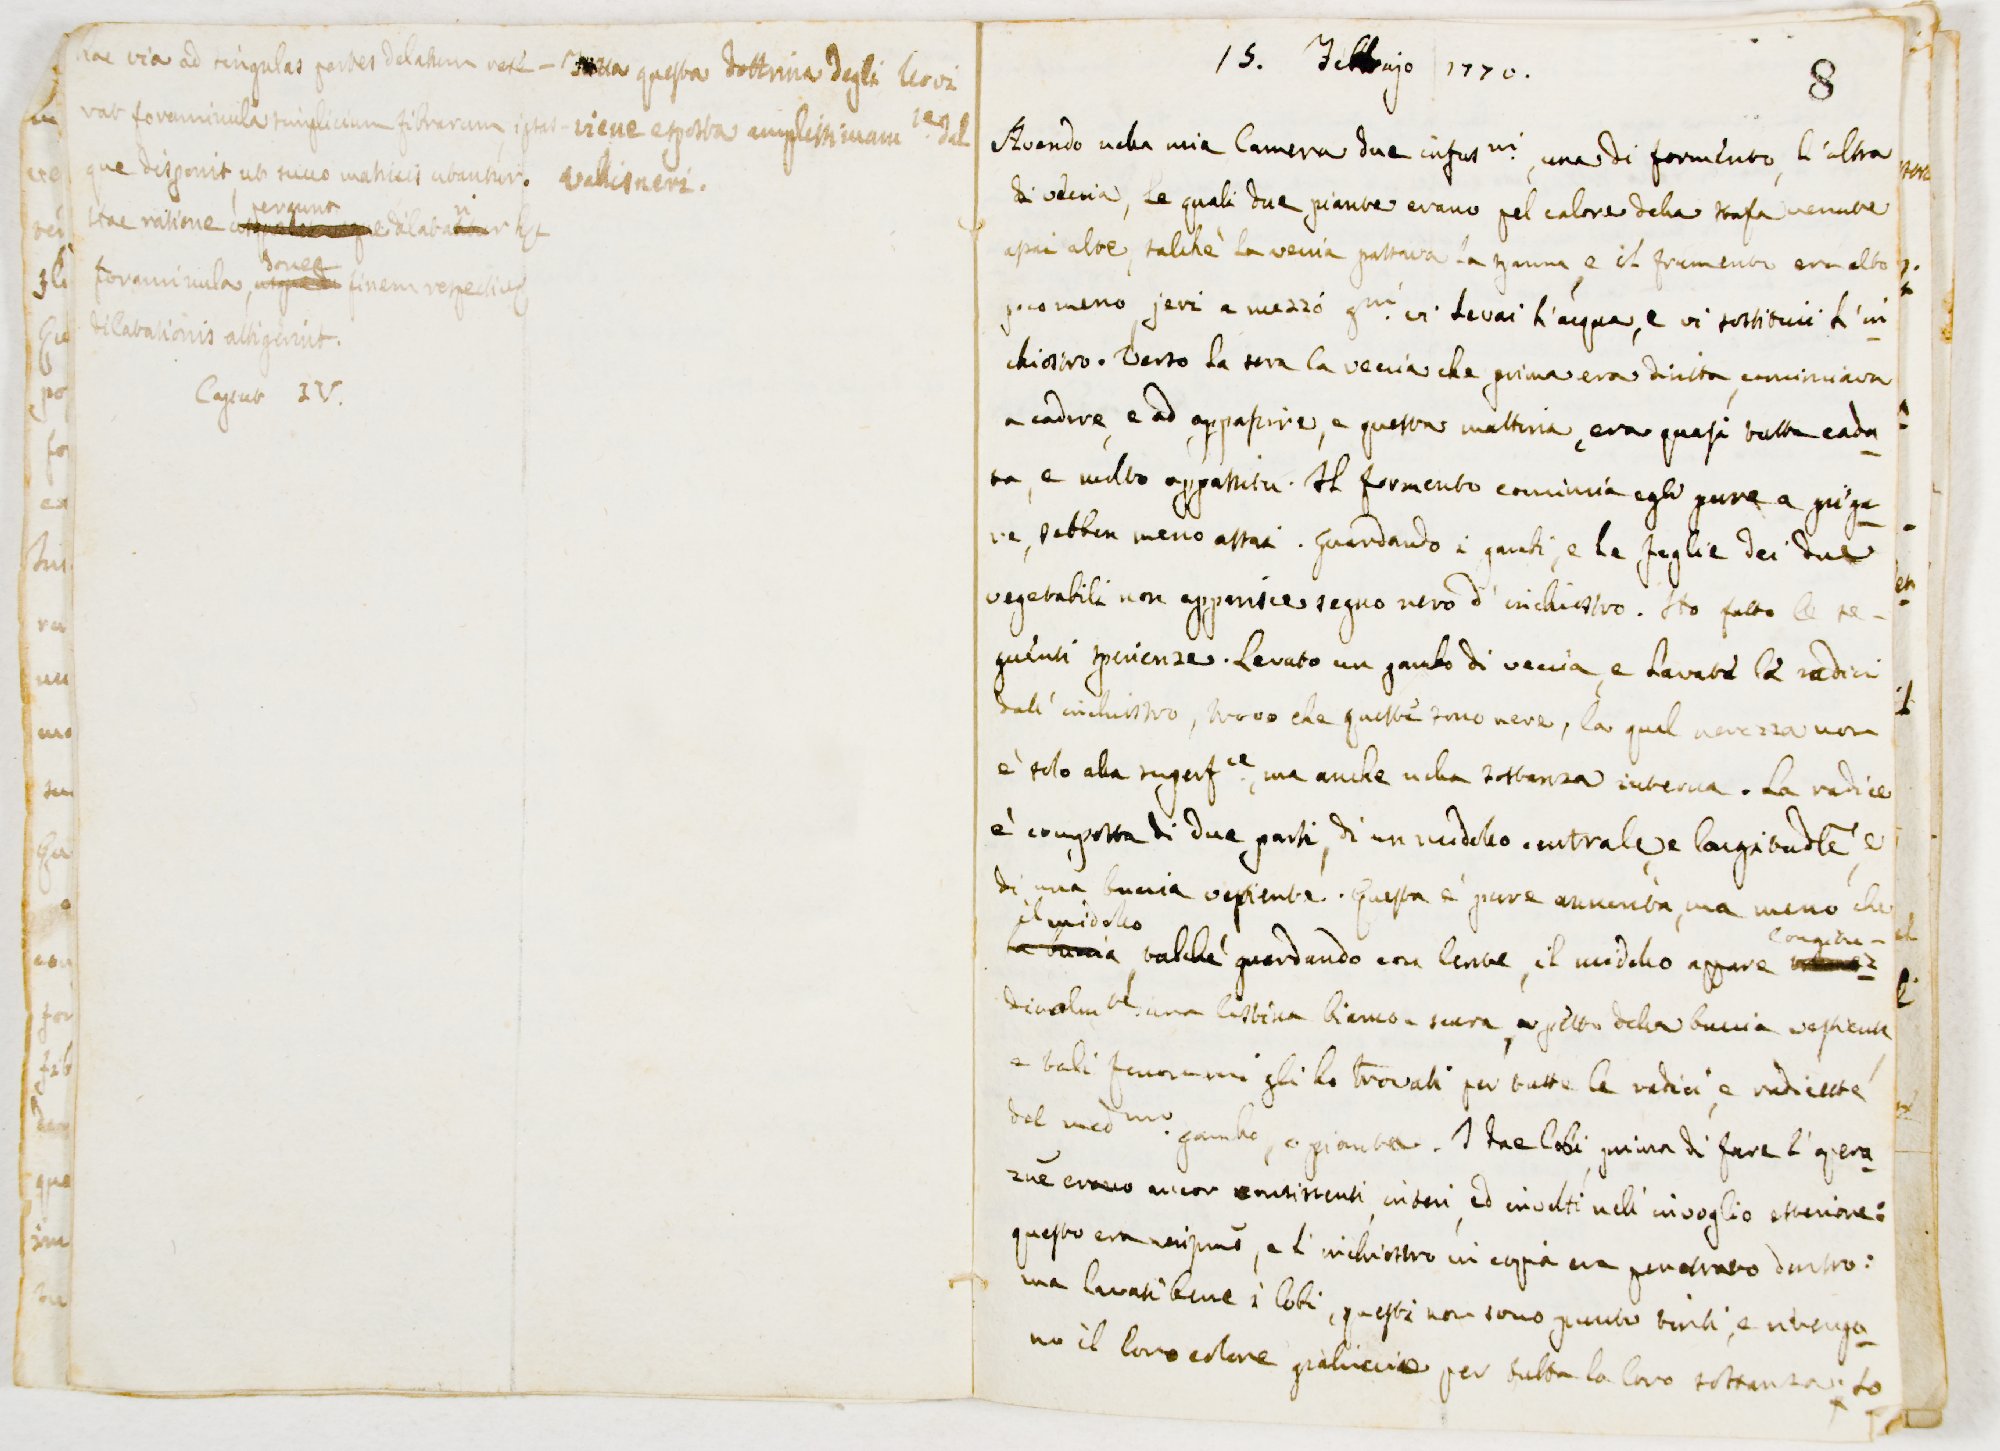 hac via ad singulas partes delatum rese-
rat foraminula simplicium fibrarum, iptas-
que disponit, ut succo matricis utantur.
Hac ratione pergunt dilatari hęc
foraminula, donec finem respectivę
dilatationis attigerint.
Caput IV.
Tutta questa dottrina degli leovi
viene esposta amplissimam.te dal
Valisneri.
15. Febbrajo 1770.
8
Avendo nella mia Camera due infus.ni, una di formento, l'altra
di veccia, le quali due piante erano pel calore della stufa venute
assai alte, talchè la veccia passava la spanna, e il frumento era alto
poco meno, jeri a mezzo g.no vi levai l'acqua, e vi sostituii l'in
chiostro. Verso la sera la veccia che prima era diritta, cominciava
a cadere, e ad appassire, e questa mattina era quasi tutta cadu
ta, e molto appassita. Il formento comincia egli pure a piega
re, sebben meno assai. Guardando i gambi, e le foglie dei due
vegetabili non apparisce segno nero d'inchiostro. Ho fatto le se-
guenti sperienze. Levato un gambo di veccia, e lavate le radici
dall'inchiostro, trovo che queste sono nere, la qual nerezza non
è solo alla superf.ce, ma anche nella sostanza interna. La radice
è composta di due parti, di un midollo centrale, e longitudle, e
di una buccia vestiente. Questa è pure annerita, ma meno che
il midollo
la buccia, talchè guardando con lente, il midollo appare longitu-
dinalm.te una listina bianco-scura, a petto della buccia vestiente
e tali fenomeni gli ho trovati per tutte le radici, e radicette
del med.mo gambo, o pianta. I due lobi, prima di fare l'opera
zne erano ancor consistenti, interi, ed involti nell'invoglio esteriore:
questo era nerissmo, e l'inchiostro in copia era penetrato dentro:
ma lavati bene i lobi, questi non sono punto tinti, e ritengo-
no il loro colore gialliccio per tutta la loro sostanza; lo